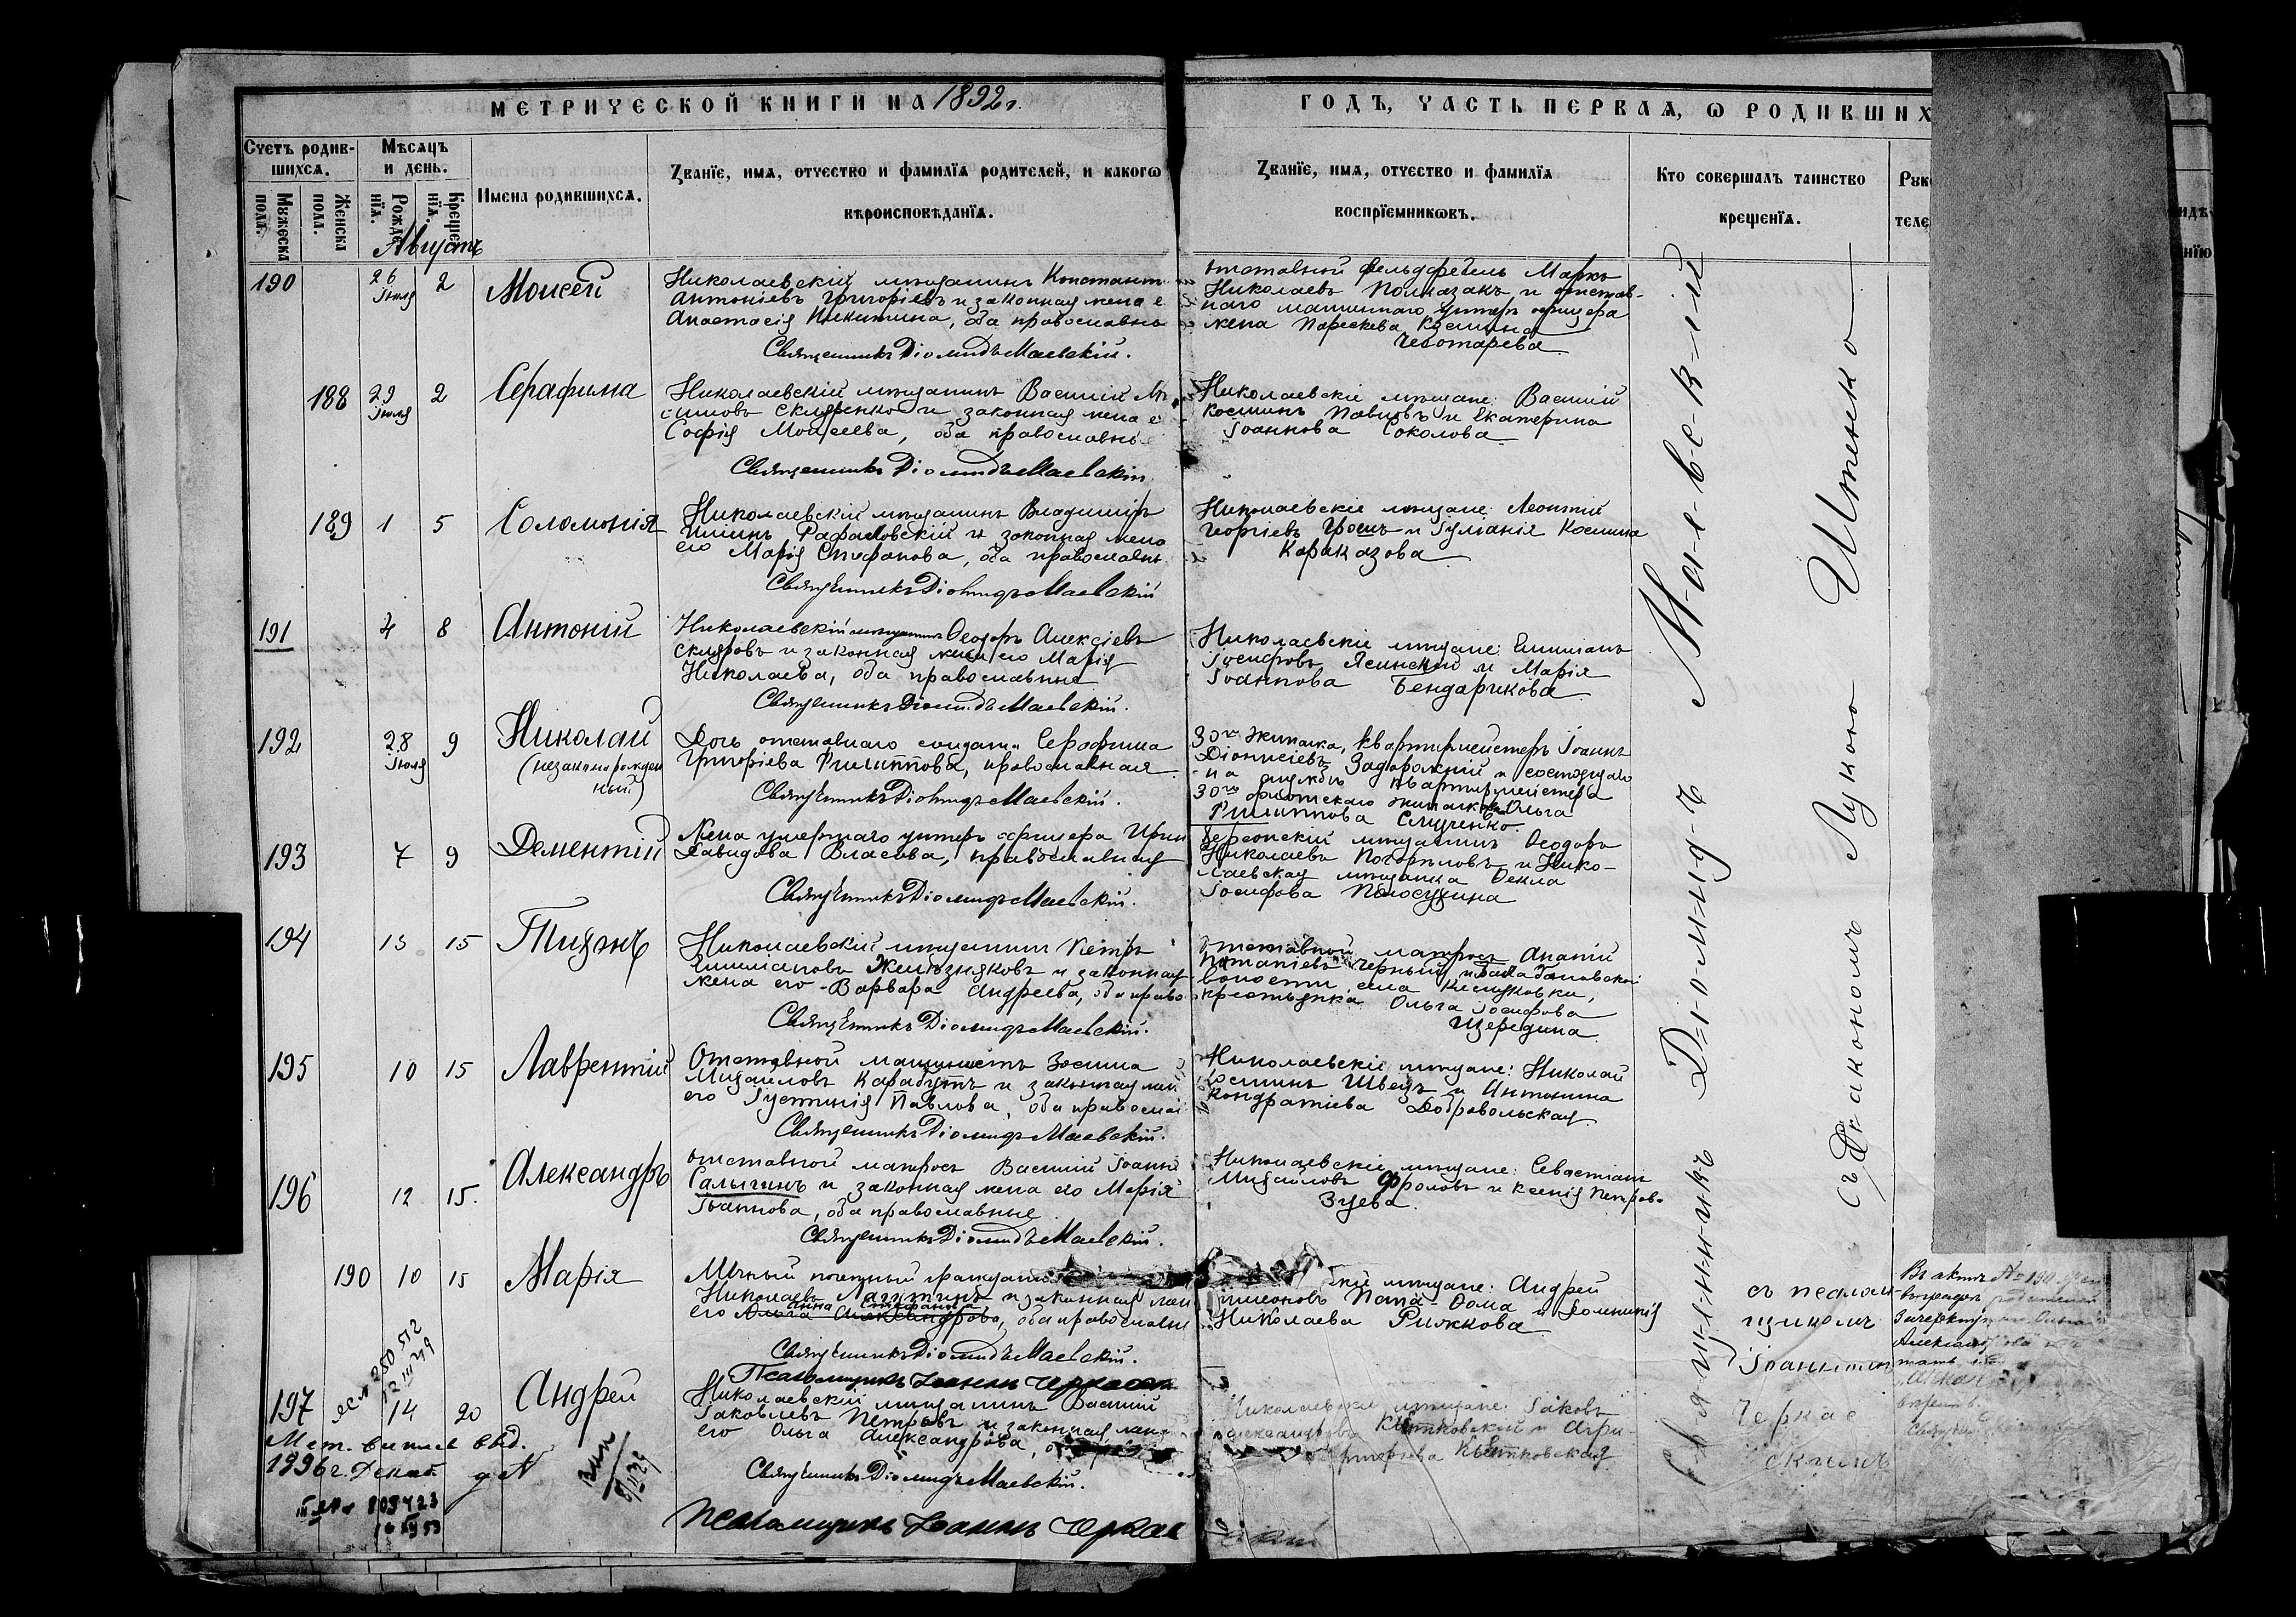 МЕТРИЧЕСКОЙ КНИГИ НА 1892 г.
ГОДЪ, ЧАСТЬ ПЕРВАЯ, Ѡ РОДИВШИХ
Счетъ родив-
шихся.
Мѣсяцъ
и день.
Имена родившихся.
Званїе, имя, отчество и фамилїя родителей, и какогѡ
вѣроисповѣданїя.
Званїе, имя, отчество и фамилїя
воспрїемникѡвъ.
Кто совершалъ таинство
крещенїя.
Мужеска
пола.
Женска
пола.
Рожде
нїя.
Крещен
нїя.
Августъ
190
26
Іюля
2
Моисей
Николаевскій мѣщанинъ Констант
Антоніевъ Григоріевъ и законная жена е
Анастасія Никитина, оба православны
Священникъ Діомидъ Маевскій.
Отставной фельдфебель Маркъ
Николаевъ Полказакъ и отстав-
наго машиннаго унтеръ офицера
жена Параскева Косьмина
Чеботарева
188
29
Іюля
2
Серафима
Николаевскій мѣщанинъ Василій
симовъ Скляренко и законная жена е
Софія Моисеева, оба православны
Священникъ Діомидъ Маевскій.
Николаевскіе мѣщане: Василій
Косминъ Павловъ и Екатерина
Іоаннова Соколова
189
1
5
Соломонія
Николаевскій мѣщанинъ Владиміръ
Иліинъ Рафаловскій и законная жена
его Марія Стефанова, оба православн
Священникъ Діомидъ Маевскій
Николаевскіе мѣщане: Леонтій
Георгіевъ Гросулъ и Іуліанія Косьмина
Караказова
191
4
8
Антоній
Николаевскій мѣщанинъ Ѳеодоръ Алексіевъ
Скляровъ и законная жена его Марія
Николаева, оба православные
Священникъ Діомидъ Маевскій.
Николаевскіе мѣщане: Емиліанъ
Іосифовъ Ясинскій и Марія
Іоаннова Бендарикова
192
28
Іюля
9
Николай
(незаконорожден
ный)
Дочь отставнаго солдата Серафима
Григоріева Филиппова, православная
Священникъ Діомидъ Маевскій.
30го экипажа, квартирмейстеръ Іоаннъ
Діонисіевъ Задорожній и состоящаго
на службѣ квартирмейстера
30го флотскаго экипажа жена Ольга
Филиппова Слученко.
193
7
9
Дементій
Жена умершаго унтеръ офицера Ирин
Давидова Власова, православная
Священникъ Діомидъ Маевскій.
Херсонскій мѣщанинъ Ѳеодоръ
Николаевъ Погорѣловъ и Нико-
лаевская мѣщанка Ѳекла
Іосифова Полосухина
194
13
15
Тихонъ
Николаевскій мѣщанинъ Петръ
Емиліановъ Желѣзняковъ и законная
жена его Варвара Андреева, оба право
Священникъ Діомидъ Маевскій.
Отставной матросъ Ананій
Потапіевъ Черный и Балабановской
волости, села Кисляковки,
крестьянка Ольга Іосифова
Щередина
195
10
15
Лаврентій
Отставной машинистъ Зосима
Михайловъ Карабутъ и законная жен
его Іустинія Павлова, оба православ
Священникъ Діомидъ Маевскій.
Николаевскіе мѣщане: Николай
Косминъ Швецъ и Антонина
Кондратіева Добровольская
196
12
15.
Александръ
Отставной матросъ Василій Іоанн
Салыгинъ и законная жена его Марія
Іоаннова, оба православные
Священникъ Діомидъ Маевскій.
Николаевскіе мѣщане: Севастіанъ
Михайловъ Фроловъ и Ксенія Петрова
Зуева.
190
10
15
Марія
Личный почетный гражданинъ
Николаевъ Лагутинъ и законная жен
Анна Стефанова
его Ольга Александрова, оба православны
Священникъ Діомидъ Маевскій.
Псаломщикъ Іоаннъ Черкасск
кіе мѣщане: Андрей
Симеоновъ Папа-Ѳома и Домникія
Николаева Рыжкова
съ псалом-
щикомъ
Іоанномъ
Черкас
скимъ
Въ актѣ № 190 в
зачеркнуто Ольга
Александрова
197
14
20
Андрей
Николаевскій мѣщанинъ Василій
Іаковлевъ Петровъ и законная жена
его Ольга Александрова,
Священникъ Діомидъ Маевскій.
Псаломщикъ Іоаннъ Черкас
скій
Николаевскіе мѣщане: Іаковъ
Александровъ Квятковскій и Агри-
Григорьева Квятковская
Мет. выпись выд.
1896 г. Декаб.
Священникъ Діомидъ Маевскій
съ Діакономъ Лукою Ильенко